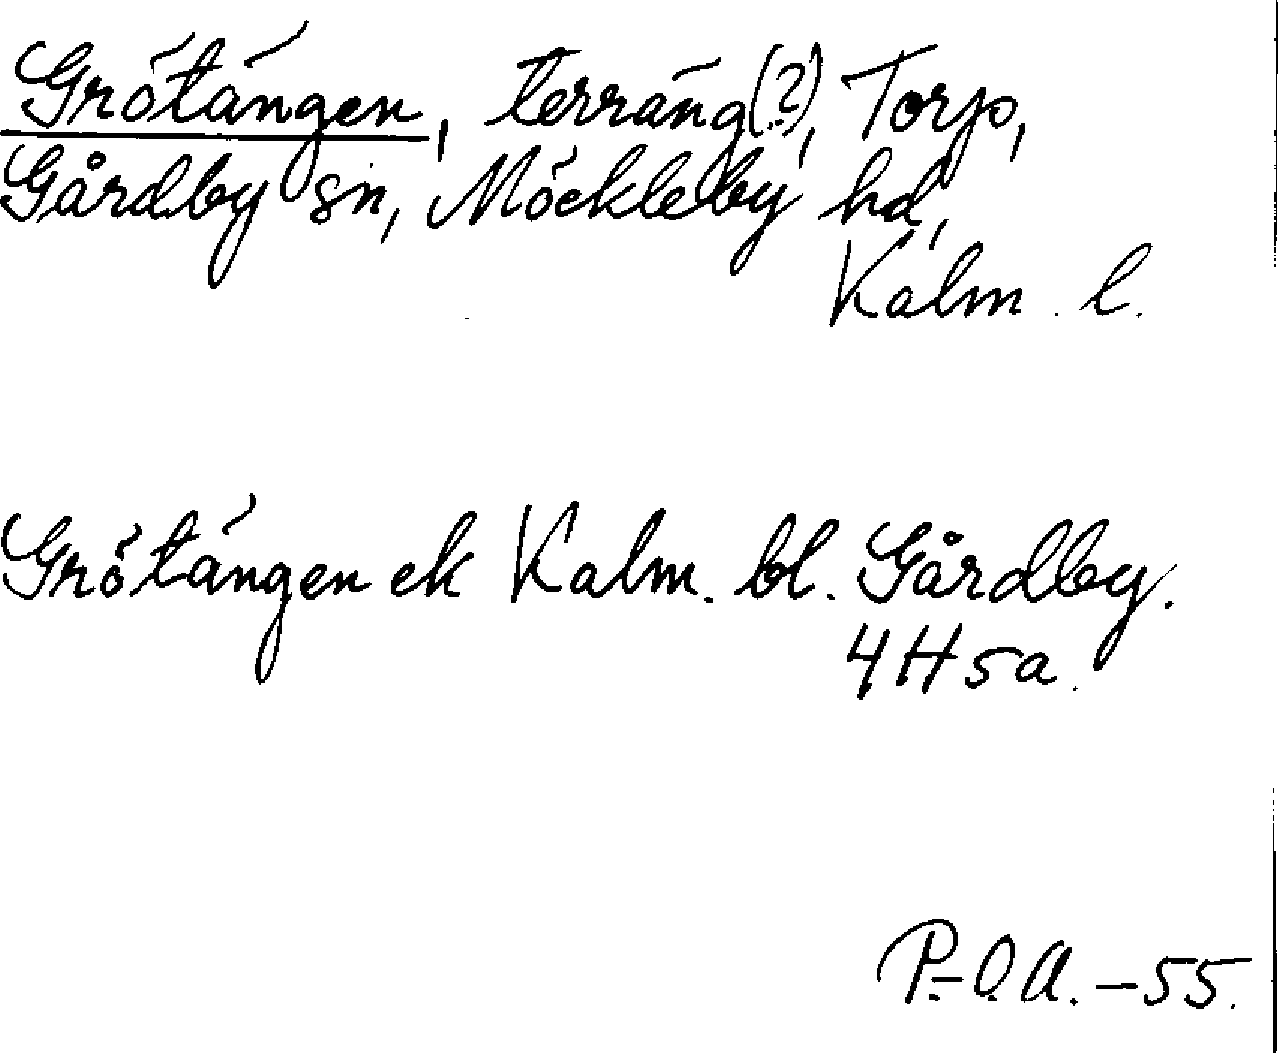 Grötängen, terräng(?), Torp,
Gårdby sn, Möckleby hd,
Kalm. l.
Grötängen ek Kalm. bl. Gårdby.
4H5a.
P.-O.A.-55.